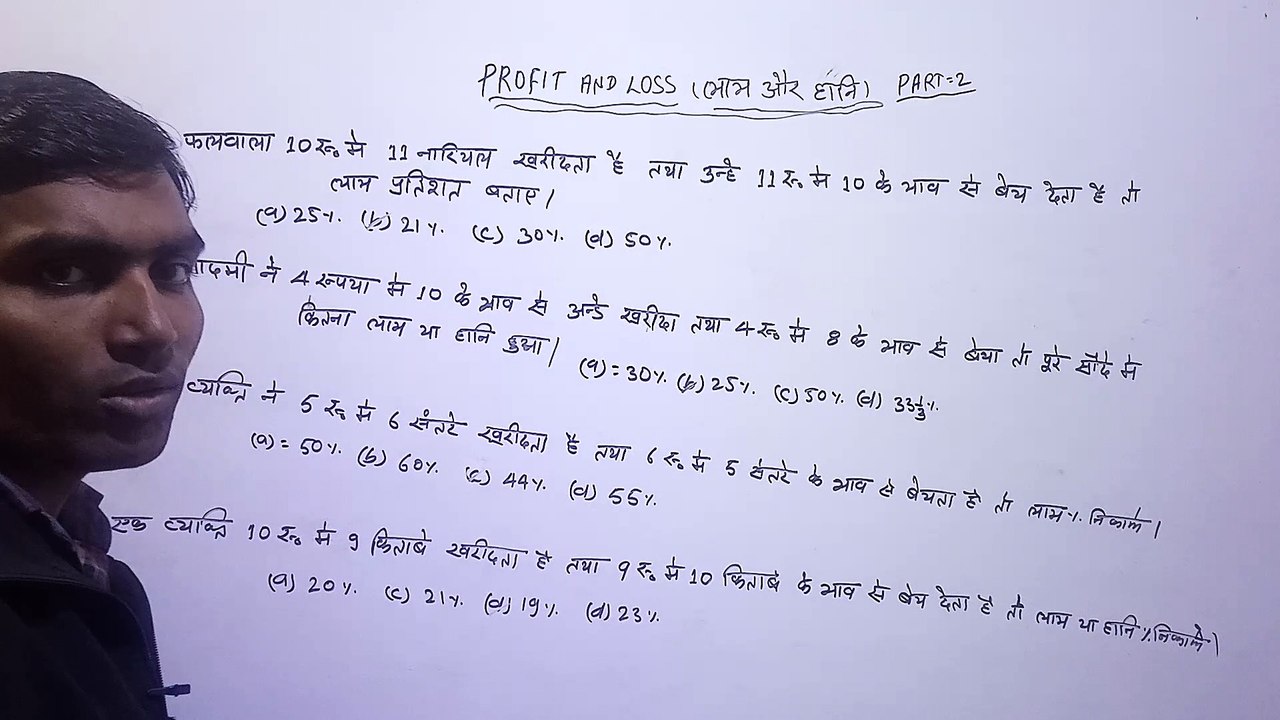 PROFIT AND LOSS (लाभ और हानि) PART=2
फलवाला 10 रू० मे 11 नारियल खरीदता है तथा उन्हे 11 रू० मे 10 के भाव से बेच देता है तो
लाभ प्रतिशत बताए।
(a) 25%. (b) 21%. (c) 30%. (d) 50%.
ादमी ने 4 रूपया मे 10 के भाव से अन्डे खरीदा तथा 4 रू० मे 8 के भाव से बेचा तो पूरे सौदे मे
कितना लाभ या हानि हुआ।
(a) = 30%. (b) 25%. (c) 50%. (d) 33⅓%.
व्यक्ति ने 5 रू० मे 6 संतरे खरीदता है तथा 6 रू० मे 5 संतरे के भाव से बेचता है तो लाभ% निकाले।
(a) = 50%. (b) 60%. (c) 44%. (d) 55%.
एक व्यक्ति 10 रू० मे 9 किताबे खरीदता है तथा 9 रू० मे 10 किताबे के भाव से बेच देता है तो लाभ या हानि % निकाले।
(a) 20%. (c) 21%. (d) 19%. (d) 23%.